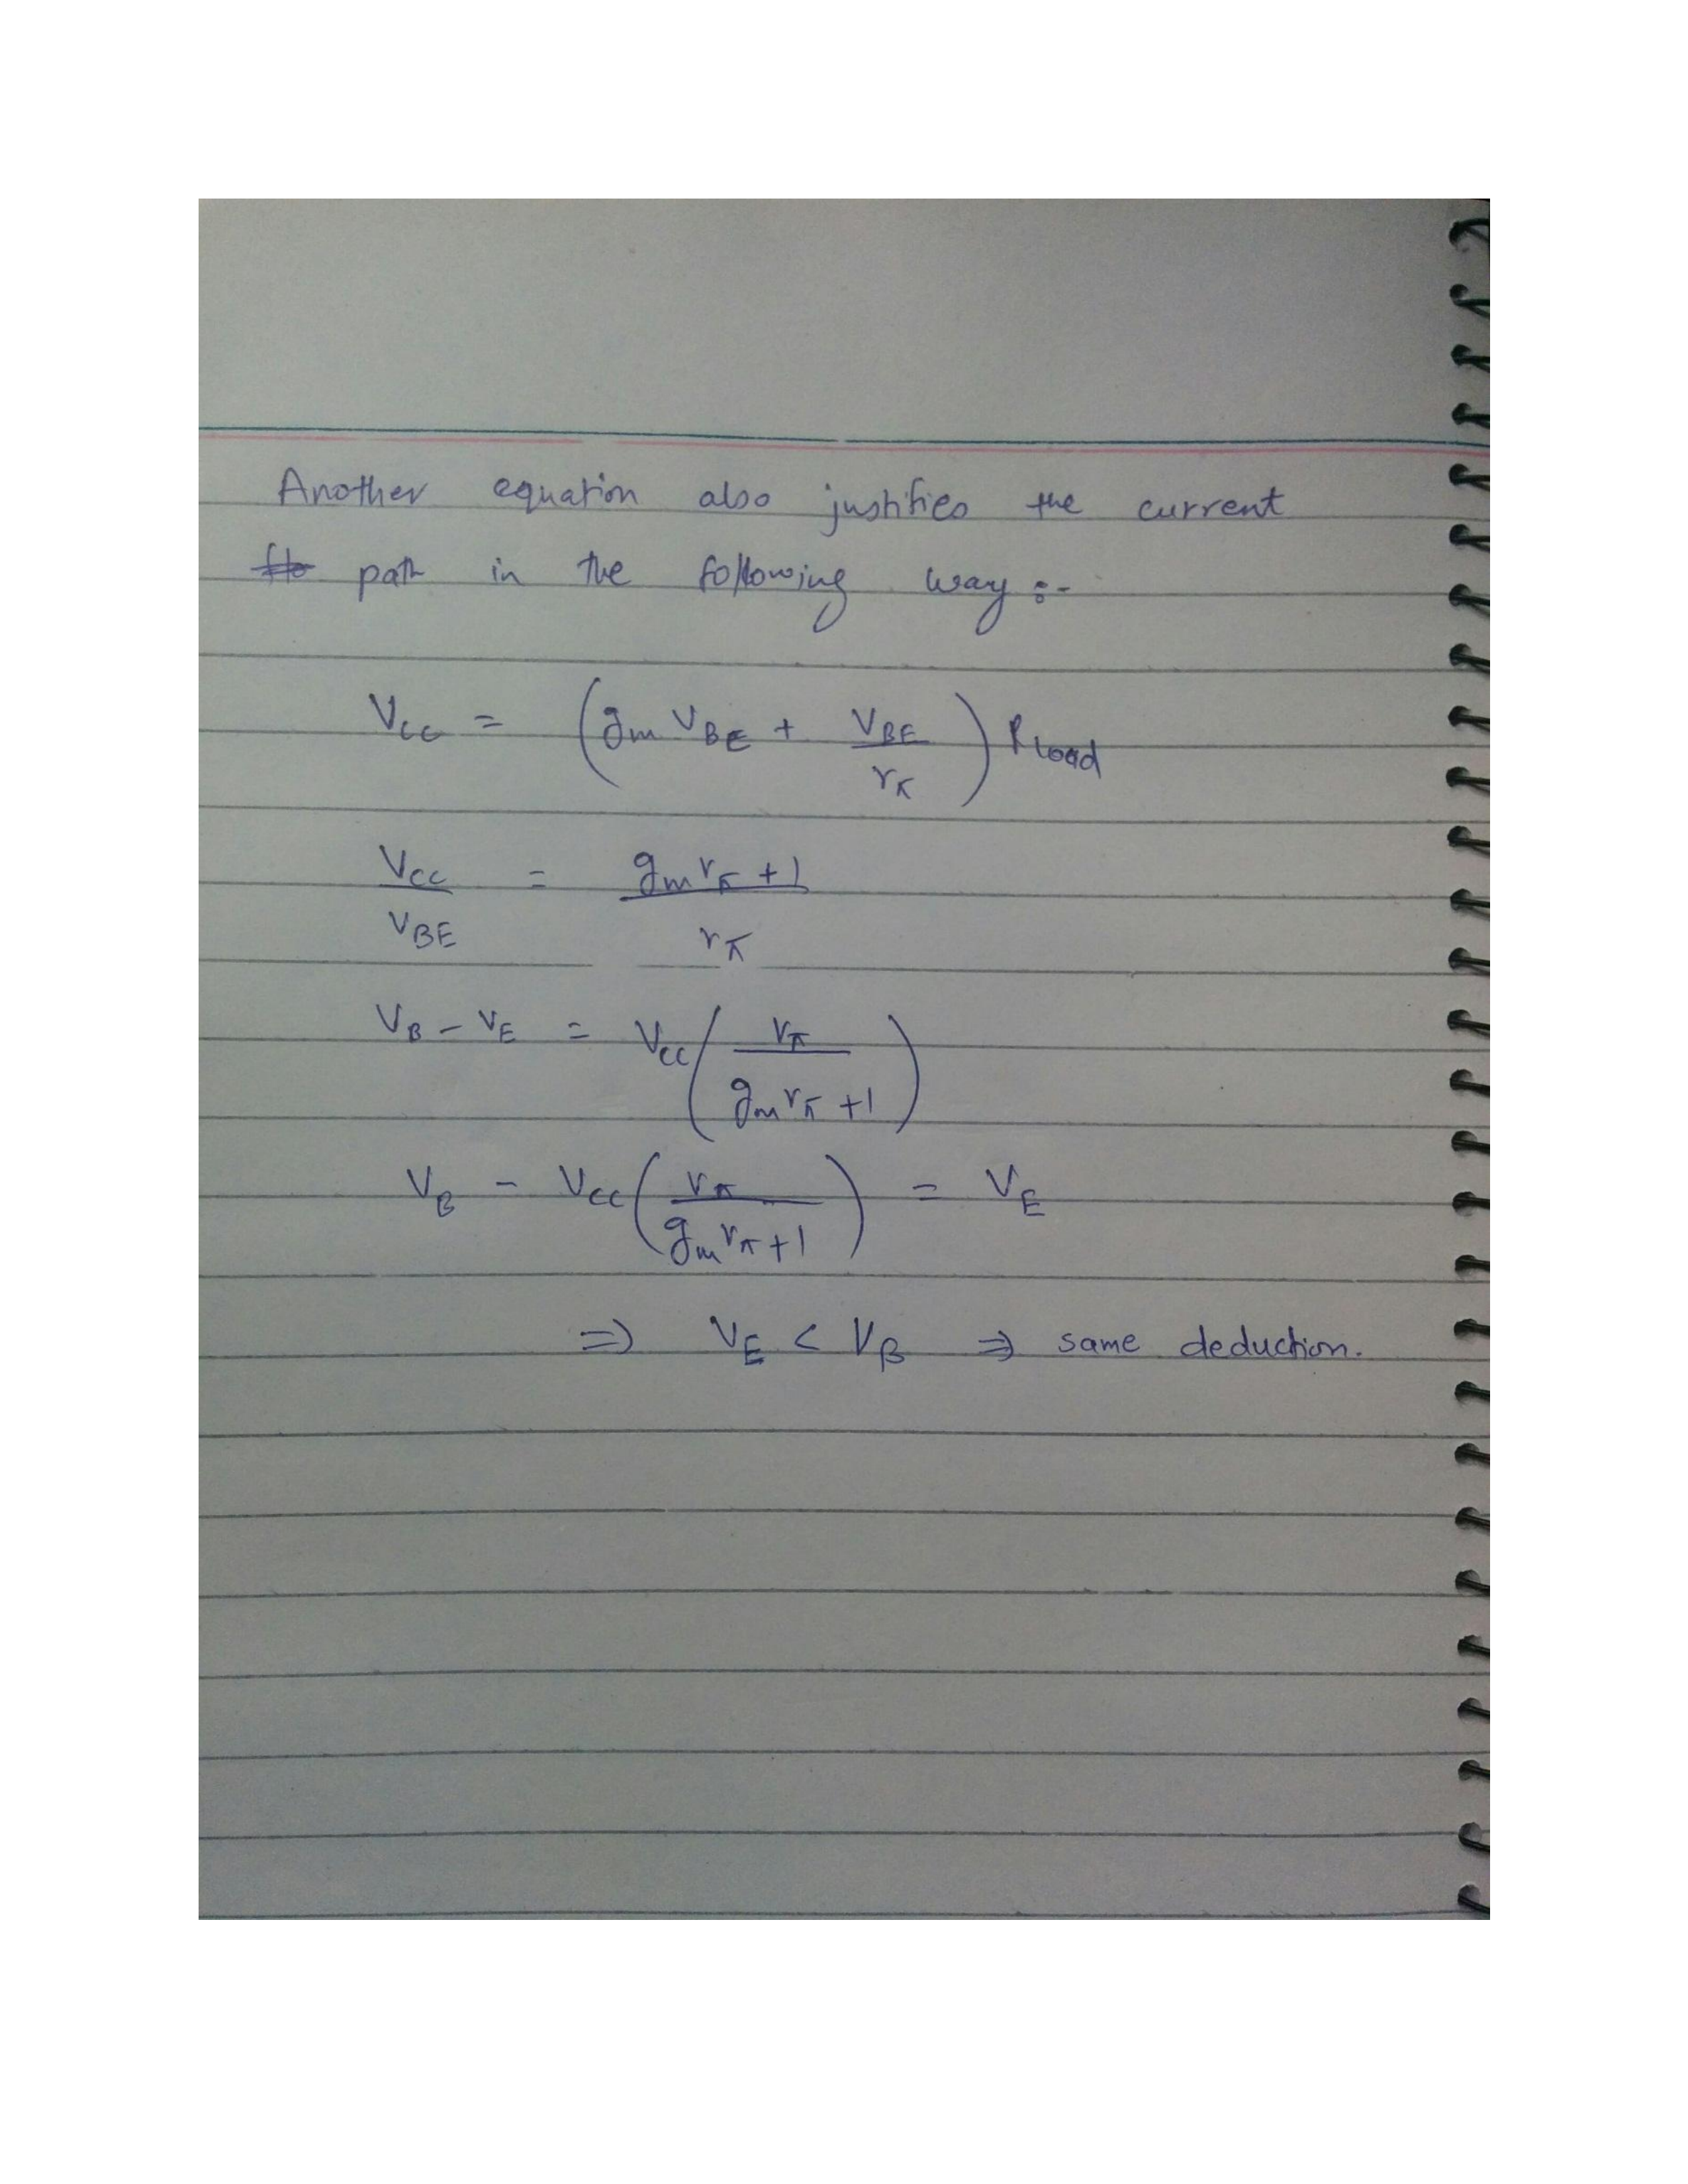 Another equation also justifies the current
flo path in the following way :-
V_CC = (g_m V_BE + V_BE / r_π) R_Load
V_CC / V_BE = (g_m r_π + 1) / r_π
V_B - V_E = V_CC (r_π / (g_m r_π + 1))
V_B - V_CC (r_π / (g_m r_π + 1)) = V_E
⇒ V_E < V_B ⇒ same deduction.